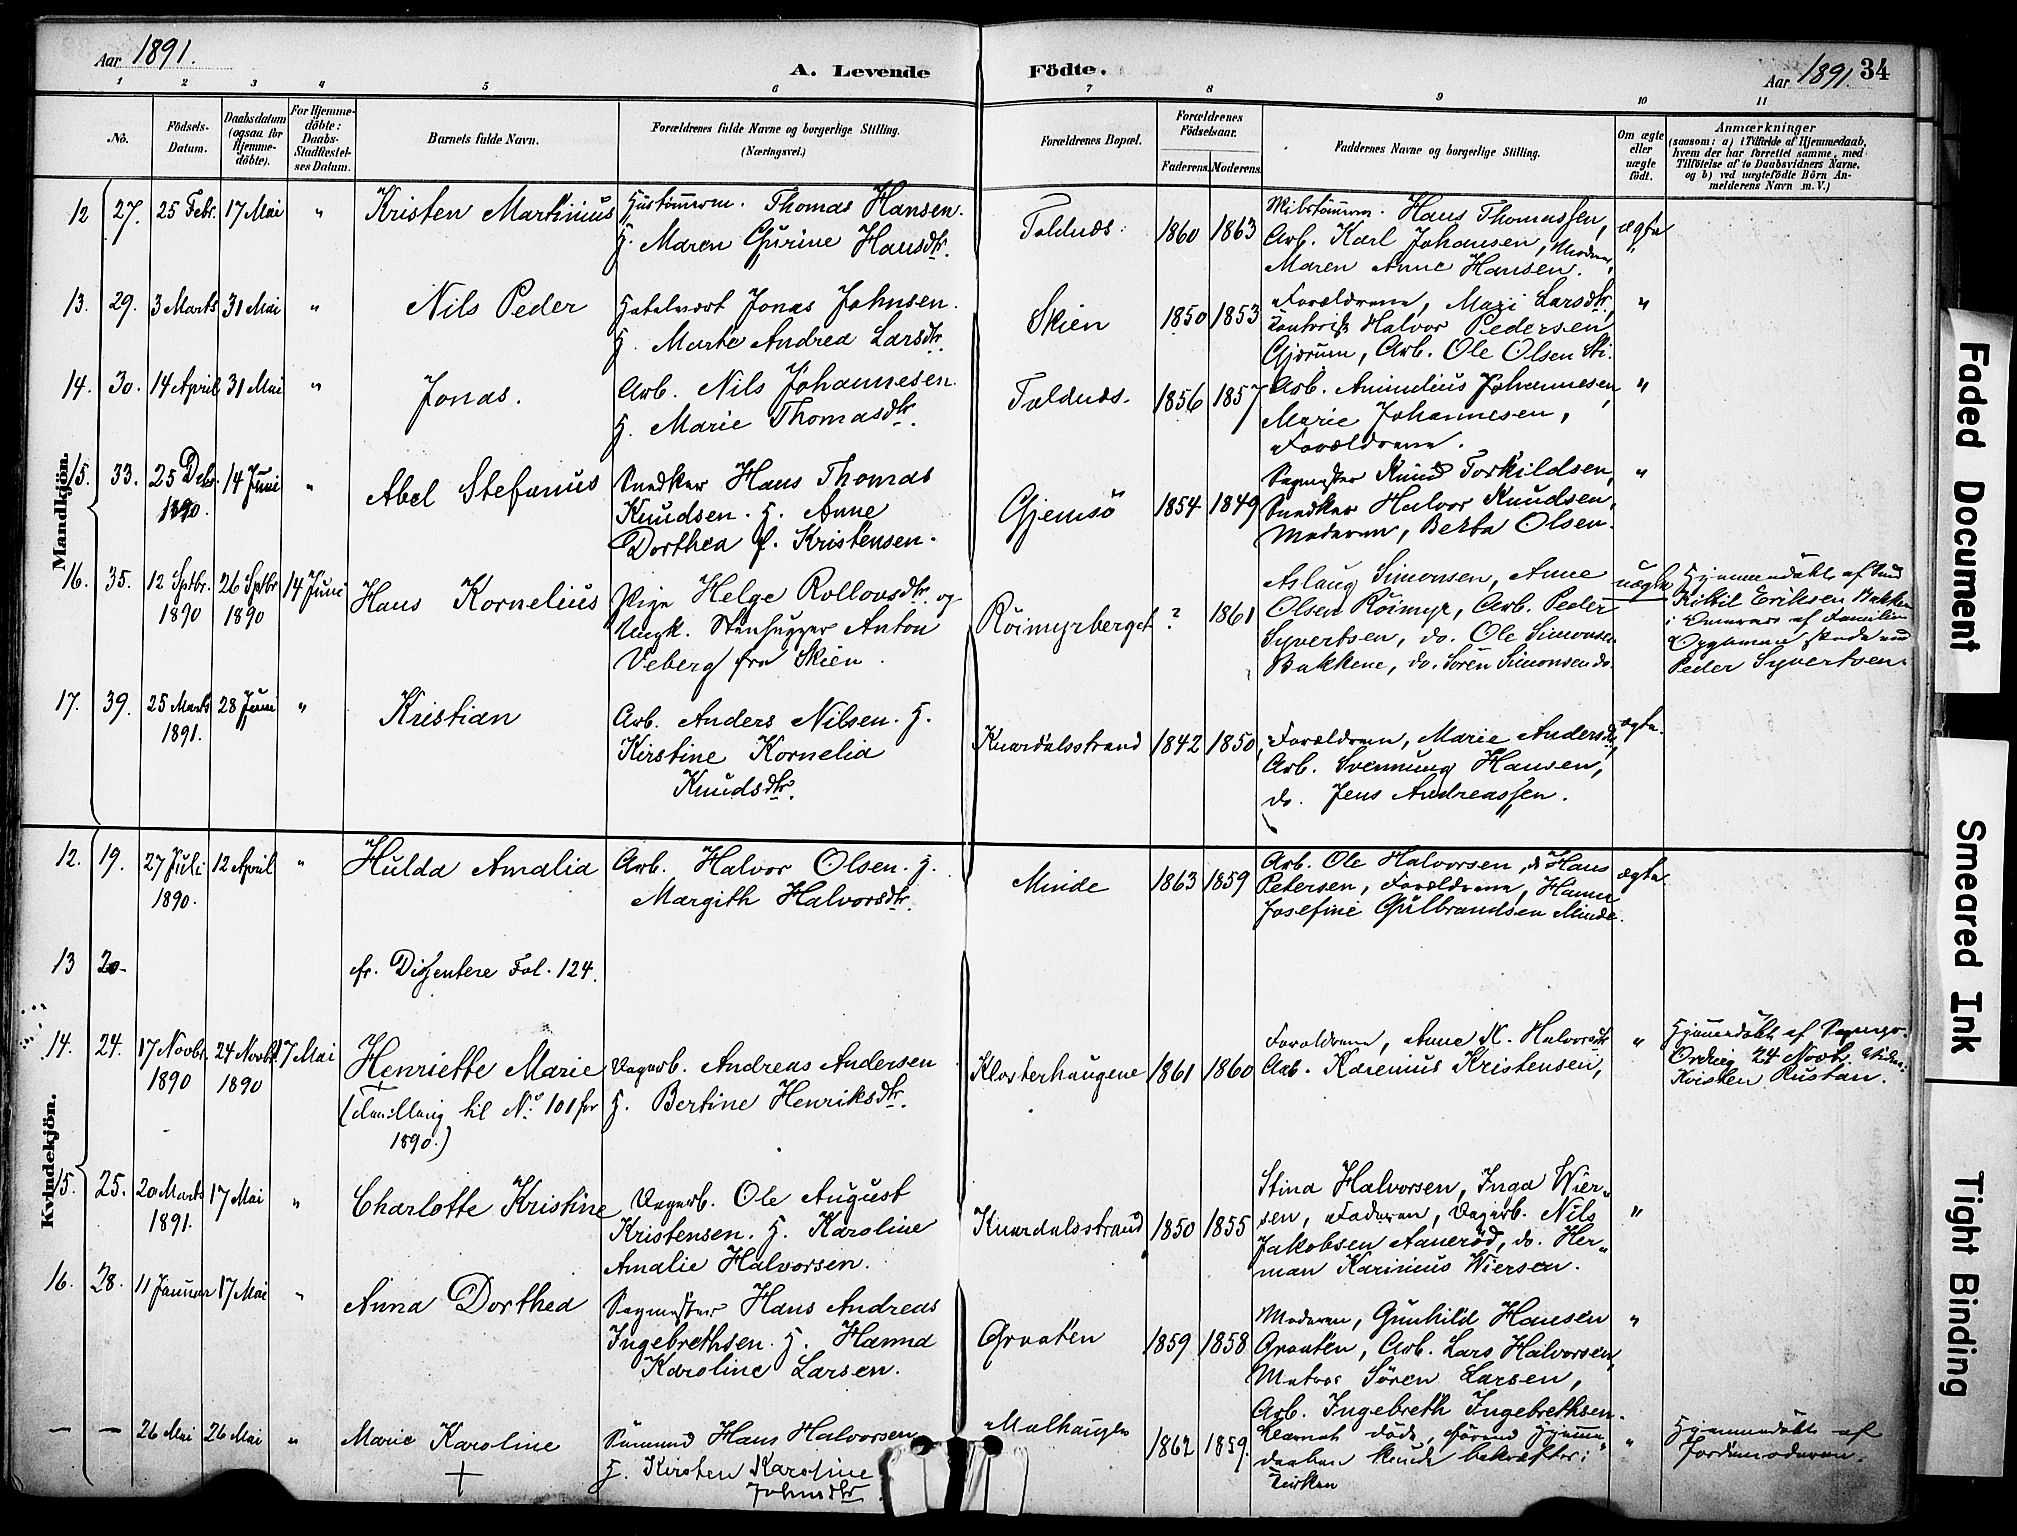 Aar 1891.
A. Levende Födte.
Aar 1891. 34
1 2 3 4 5 6 7 8 9 10 11
No.
Födsels-
Datum.
Daabsdatum
(ogsaa for
Hjemme-
döbte).
For Hjemme-
döbte:
Daabs-
Stadfæstel-
ses Datum.
Barnets fulde Navn.
Forældrenes fulde Navne og borgerlige Stilling.
(Næringsvei.)
Forældrenes Bopæl.
Forældrenes
Födselsaar.
Faderens. Moderens.
Faddernes Navne og borgerlige Stilling.
Om ægte
eller
uægte
födt.
Anmærkninger
(saasom: a) i Tilfælde af Hjemmedaab,
hvem der har forrettet samme, med
Tilföielse af to Daabsvidners Navne.
og b) ved uægtefödte Börn An-
melderens Navn m. V.)
Mandkjön.
12 27. 25 Febr. 17 Mai " Kristen Martinius
Thomas Hansen.
H. Maren Gurine Hansdtr.
Foldnæs. 1860 1863
Hans Thomassen,
Arb. Karl Johansen, Moderen,
Maren Anne Hansen.
ægte
13. 29. 3 Marts 31 Mai " Nils Peder
Jonas Johnsen.
H. Marte Andrea Larsdtr.
Skien 1850 1853
Forældrene, Mari Larsdtr.
Halvor Pedersen
Gjerum, Arb. Ole Olsen Sti.
"
14. 30. 14 April 31 Mai " Jonas.
Arb. Nils Johannesen.
H. Marie Thomasdtr.
Foldnæs. 1856 1857
Arb. Johannesen,
Marie Johannesen,
Forældrene.
"
15. 33. 25 Debr. 14 Juni " Abel Stefanus
1890.
Snedker Hans Thomas
Knudsen. H. Anne
Dorthea f. Kristensen.
Gjemsö 1854 1849
Sagmester Knud Torkildsen,
Snedker Halvor Knudsen,
Moderen, Berta Olsen.
"
16. 35. 12 Sptbr. 26 Sptbr 14 Juni Hans Kornelius
1890 1890
Pige Helge Rollovsdtr. og
Ungk. Stenhugger Anton
Veberg fra Skien.
Röimyrberget ? 1861
Aslaug Simonsen, Anne
Olsen Röimyr, Arb. Peder
Syvertsen, do. Ole Simonsen
Bakkene, do. Sören Simonsen do.
uægte
Hjemmedöbt af
Kittil Eriksen Bakken
i Nærvær af Familien
Peder Syvertsen.
17. 39. 25 Marts 28 Juni " Kristian
1891.
Arb. Anders Nilsen. H.
Kirstine Kornelia
Knudsdtr.
Knardalsstrand 1842 1850
Forældrene, Marie Andersdtr,
Arb. Svennung Hansen,
do. Jens Andreassen.
ægte.
Kvindekjön.
12. 19. 27 Juli 12 April " Hulda Amalia
1890.
Arb. Halvor Olsen. H.
Margith Halvorsdtr.
Minde 1863 1859
Arb. Ole Halvorsen, do Hans
Petersen, Forældrene, Hanna
Josefine Gulbrandsen Minde.
ægte
13 20. fr. Dissentere Fol. 124.
14. 24. 17 Novbr. 24 Novbr. 17 Mai Henriette Marie
1890 1890
til No 101 for
1890.)
Dagarb. Andreas Andersen
H. Bertine Henriksdtr.
Klosterhaugene 1861 1860
Forældrene, Anne M. Halvorsdtr
Arb. Karenius Kristensen,
"
Hjemmedöbt af
24 Novb.
Kristen Rustan.
15. 25. 20 Marts 17 Mai " Charlotte Kristine
1891.
Dagarb. Ole August
Kristensen. H. Karoline
Amalie Halvorsen.
Knardalsstrand 1850 1855
Stina Halvorsen, Inga Wier-
sen, Faderen, Dagarb. Nils
Jakobsen Aaneröd, do. Her-
man Karinius Wiersen.
"
16. 28. 11 Januar 17 Mai " Anna Dorthea
Sagmester Hans Andreas
Ingebrethsen. H. Hanna
Karoline Larsen.
Graaten 1859 1858
Moderen, Gunhild Hansen
Graaten, Arb. Lars Halvorsen,
Matros Sören Larsen,
Arb. Ingebreth Ingebrethsen.
"
— — 26 Mai 26 Mai " Marie Karoline
+
Sömand Hans Halvorsen
H. Kirsten Karoline
Johnsdtr
Melhaugen 1862 1859.
Barnet döde, förend Hjemme-
daaben kunde bekræftes i
Kirken
"
Hjemmedöbt af
Jordemoderen.
Faded Document
Smeared Ink
Tight Binding